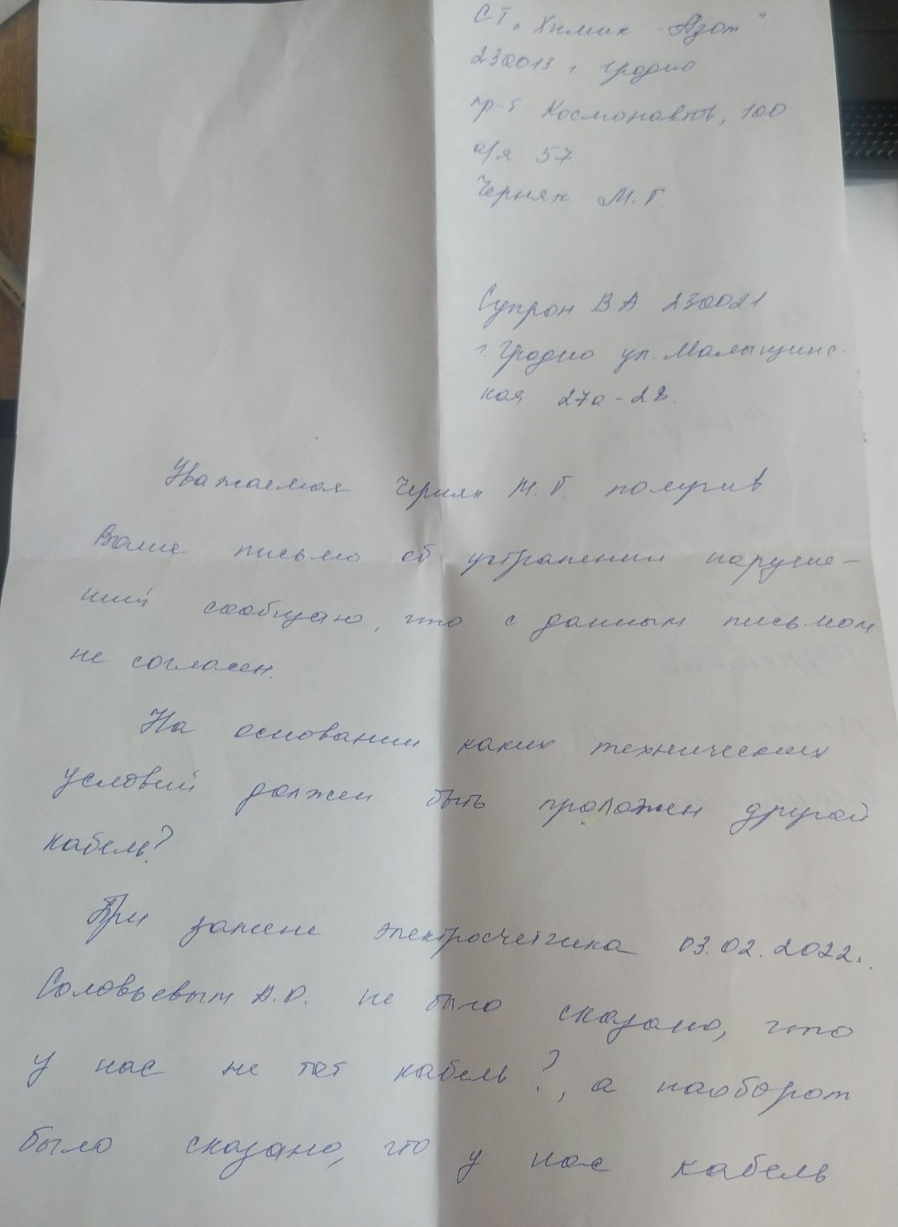 СТ "Химик - Азот"
230013 г. Гродно
пр-т Космонавтов, 100
а/я 57
Черняк М. Г.
Супрон В А 230021
г. Гродно ул. Малыщинс-
кая 27а - 28.
Уважаемая Черняк М. Г. получив
Ваше письмо об устранении наруше-
ний сообщаю, что с данным письмом
не согласен.
На основании каких технических
условий должен быть проложен другой
кабель?
При замене электросчетчика 03.02.2022г.
Соловьевым А.О. не было сказано, что
у нас не тот кабель?, а наоборот
было сказано, что у нас кабель